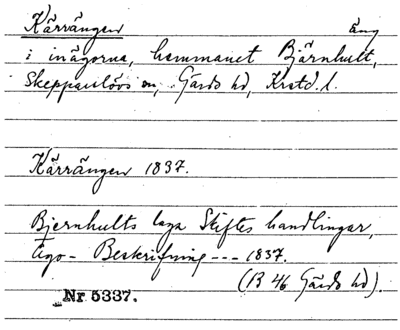 Kärrängen äng
i inägorna, hemmanet Bjärnhult,
Skepparslövs sn, Gärds hd, Krstd. l.
Kärrängen 1837.
Bjernhults laga Skiftes handlingar,
Ego- Beskrifning --- 1837.
(B 46 Gärds hd).
Nr 5337.